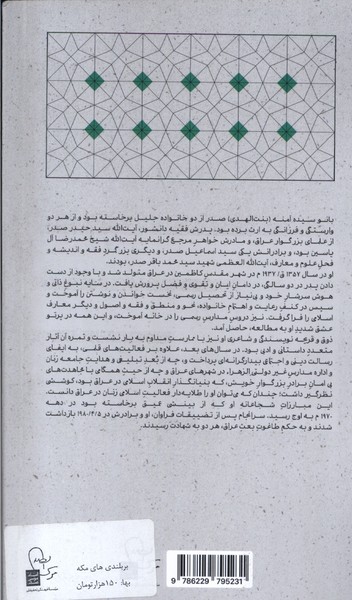 بانو سیّده آمنه (بنت‌الهدی) صدر از دو خانواده جلیل برخاسته بود و از هر دو
وارستگی و فرزانگی به ارث برده بود. پدرش فقیه دانشور، آیت‌الله سید حیدر صدر،
از علمای بزرگوار عراق، و مادرش خواهر مرجع گرانمایه آیت‌الله شیخ محمدرضا آل
یاسین بود، و برادرانش یکی سید اسماعیل صدر، و دیگری بزرگ‌مردِ فقه و اندیشه و
فحل علوم و معارف، آیت‌الله العظمی شهید سید محمد باقر صدر، بودند.
او در سال ۱۳۵۷ ق/ ۱۹۳۷ م در شهر مقدس کاظمین در عراق متولد شد و با وجود از دست
دادن پدر در دو سالگی، در دامان ایمان و تقوی و فضل پرورش یافت. در سایه نبوغ ذاتی و
هوش سرشار خود و بی‌نیاز از تحصیل رسمی، نخست خواندن و نوشتن را آموخت و
سپس در کنف رعایت و اهتمام خانواده، نحو و منطق و فقه و اصول و دیگر معارف
اسلامی را فرا گرفت. نیز دروس مدارس رسمی را در خانه آموخت، و این همه در پرتو
عشق شدید او به مطالعه، حاصل آمد.
ذوق و قریحه نویسندگی و شاعری او نیز با ممارست مداوم به بار نشست و ثمره آن آثار
متعدد داستانی و ادبی بود. در سال‌های بعد، علاوه بر فعالیت‌های قلمی، به ایفای
رسالت دینی و اجتماعی بیدارگرانه‌ای پرداخت و، چه از بُعد تبلیغی و هدایت جامعه زنان
و اداره مدارس غیر دولتی الزهراء در شهرهای عراق و چه از حیث همگامی با مجاهدت‌های
بی امان برادر بزرگوار خویش، که بنیانگذار انقلاب اسلامی در عراق بود، کوششی
نظرگیر داشت؛ چندان که می‌توان او را طلایه‌دار فعالیت اسلامی زنان در عراق دانست.
این مبارزات شجاعانه او که از بینشی عمیق برخاسته بود در دهه
۱۹۷۰ م به اوج رسید. سرانجام پس از تضییقات فراوان، او و برادرش در ۱۹۸۰/۴/۵ بازداشت
شدند و به حکم طاغوت بعث عراق، هر دو به شهادت رسیدند.
بربلندی های مکه
بها: ۱۵۰هزارتومان
9 786229 795231